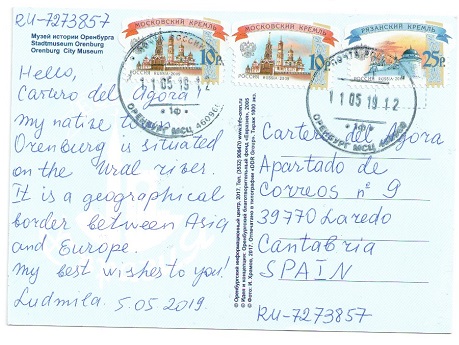 RU-7273857
Музей истории Оренбурга
Stadtmuseum Orenburg
Orenburg City Museum
Hello,
Caruro del Agora
my native town
Orenburg is situated
on the Ural river.
It is a geographical
border between Asia
and Europe.
my best wishes to you.
Ludmila. 5.05.2019.
МОСКОВСКИЙ КРЕМЛЬ
10р
РОССИЯ RUSSIA 2019
МОСКОВСКИЙ КРЕМЛЬ
10р
РОССИЯ RUSSIA 2019
РЯЗАНСКИЙ КРЕМЛЬ
25р
РОССИЯ RUSSIA
11 05 19 12
ОРЕНБУРГ МСЦ
11 05 19 12
ОРЕНБУРГ МСЦ
Cartero del Agora
Apartado de
Correos nº 9
39770 Laredo
Cantabria
SPAIN
RU-7273857